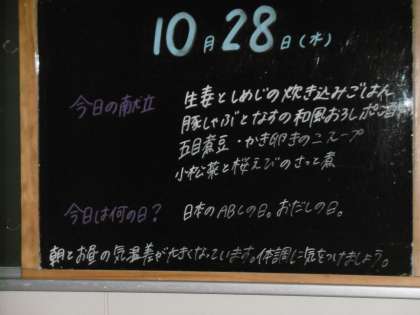 10月28日(水)
今日の献立 生姜としめじの炊き込みごはん
豚しゃぶとなすの和風おろしポン酢
五目煮豆・かき卵きのこスープ
小松菜と桜えびのさっと煮
今日は何の日? 日本のABCの日。おだしの日。
朝とお昼の気温差が大きくなっています。体調に気をつけましょう。